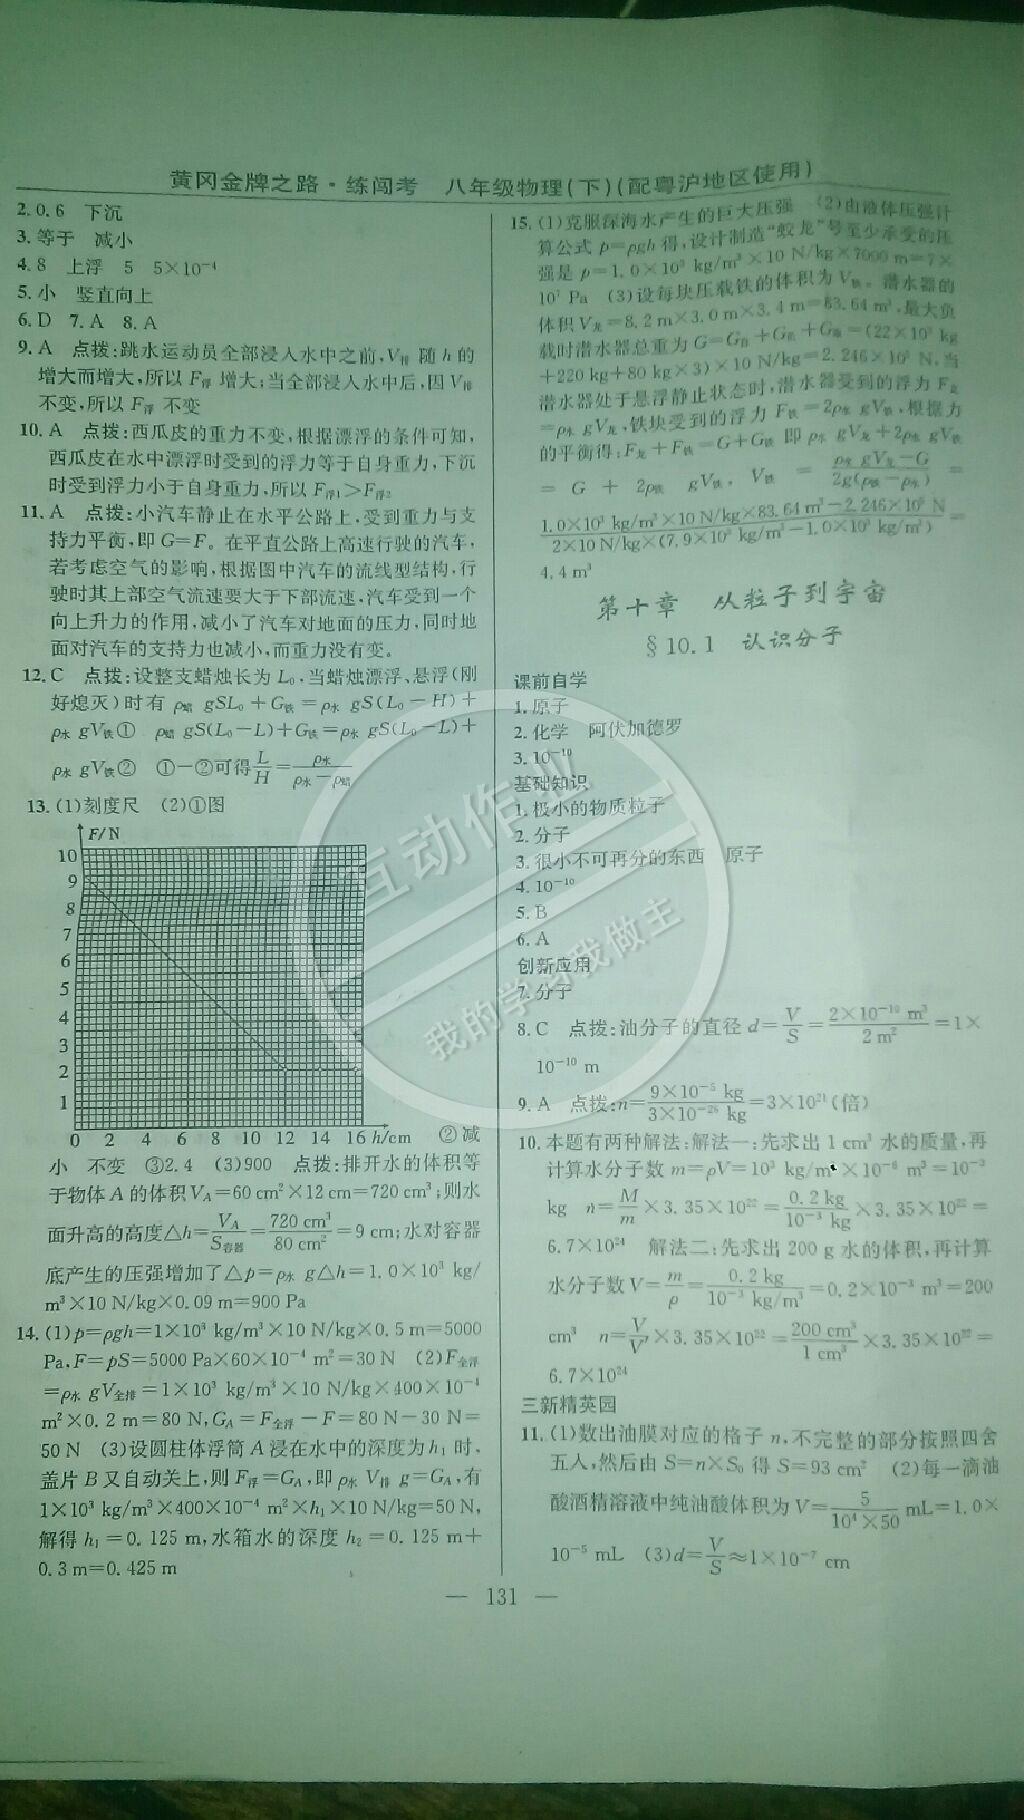 黄冈金牌之路·练闯考　八年级物理(下)(配粤沪地区使用)
2. 0.6　下沉
3. 等于　减小
4. 8　上浮　5　5×10⁻⁴
5. 小　竖直向上
6. D　7. A　8. A
9. A　点拨:跳水运动员全部浸入水中之前,V排 随 h 的
增大而增大,所以 F浮 增大;当全部浸入水中后,因 V排
不变,所以 F浮 不变
10. A　点拨:西瓜皮的重力不变,根据漂浮的条件可知,
西瓜皮在水中漂浮时受到的浮力等于自身重力,下沉
时受到浮力小于自身重力,所以 F浮1>F浮2
11. A　点拨:小汽车静止在水平公路上,受到重力与支
持力平衡,即 G=F。在平直公路上高速行驶的汽车,
若考虑空气的影响,根据图中汽车的流线型结构,行
驶时其上部空气流速要大于下部流速,汽车受到一个
向上升力的作用,减小了汽车对地面的压力,同时地
面对汽车的支持力也减小,而重力没有变。
12. C　点拨:设整支蜡烛长为 L₀,当蜡烛漂浮、悬浮(刚
好熄灭)时有 ρ蜡 gSL₀+G铁=ρ水 gS(L₀-H)+
ρ水 gV铁①　ρ蜡 gS(L₀-L)+G铁=ρ水 gS(L₀-L)+
ρ水 gV铁②　①-②可得L/H=ρ水/(ρ水-ρ蜡)
13. (1)刻度尺　(2)①图
F/N
10
9
8
7
6
5
4
3
2
1
0 2 4 6 8 10 12 14 16 h/cm　②减
小　不变　③2.4　(3)900　点拨:排开水的体积等
于物体 A 的体积 V_A=60 cm²×12 cm=720 cm³;则水
面升高的高度△h=V_A/S容器=720 cm³/80 cm²=9 cm;水对容器
底产生的压强增加了△p=ρ水 g△h=1.0×10³ kg/
m³×10 N/kg×0.09 m=900 Pa
14. (1)p=ρgh=1×10³ kg/m³×10 N/kg×0.5 m=5000
Pa,F=pS=5000 Pa×60×10⁻⁴ m²=30 N　(2)F全浮
=ρ水 gV全排=1×10³ kg/m³×10 N/kg×400×10⁻⁴
m²×0.2 m=80 N,G_A=F全浮-F=80 N-30 N=
50 N　(3)设圆柱体浮筒 A 浸在水中的深度为 h₁ 时,
盖片 B 又自动关上,则 F浮=G_A,即 ρ水 V排 g=G_A,有
1×10³ kg/m³×400×10⁻⁴ m²×h₁×10 N/kg=50 N,
解得 h₁=0.125 m,水箱水的深度 h₂=0.125 m+
0.3 m=0.425 m
15. (1)克服深海水产生的巨大压强　(2)由液体压强计
算公式 p=ρgh 得,设计制造“蛟龙”号至少承受的压
强是 p=1.0×10³ kg/m³×10 N/kg×7000 m=7×
10⁷ Pa　(3)设每块压载铁的体积为 V铁。潜水器的
体积 V龙=8.2 m×3.0 m×3.4 m=83.64 m³,最大负
载时潜水器总重为 G=G自+G负+G海=(22×10³ kg
+220 kg+80 kg×3)×10 N/kg=2.246×10⁵ N,当
潜水器处于悬浮静止状态时,潜水器受到的浮力 F龙
=ρ水 gV龙,铁块受到的浮力 F铁=2ρ水 gV铁,根据力
的平衡得:F龙+F铁=G+G铁 即 ρ水 gV龙+2ρ水 gV铁
= G + 2ρ铁 gV铁, V铁 = (ρ水 gV龙-G)/(2g(ρ铁-ρ水)) =
(1.0×10³ kg/m³×10 N/kg×83.64 m³-2.246×10⁵ N)/(2×10 N/kg×(7.9×10³ kg/m³-1.0×10³ kg/m³))=
4.4 m³
第十章　从粒子到宇宙
§10.1　认识分子
课前自学
1. 原子
2. 化学　阿伏加德罗
3. 10⁻¹⁰
基础知识
1. 极小的物质粒子
2. 分子
3. 很小不可再分的东西　原子
4. 10⁻¹⁰
5. B
6. A
创新应用
7. 分子
8. C　点拨:油分子的直径 d=V/S=(2×10⁻¹⁰ m³)/(2 m²)=1×
10⁻¹⁰ m
9. A　点拨:n=(9×10⁻⁵ kg)/(3×10⁻²⁶ kg)=3×10²¹(倍)
10. 本题有两种解法:解法一:先求出 1 cm³ 水的质量,再
计算水分子数 m=ρV=10³ kg/m³×10⁻⁶ m³=10⁻³
kg　n=M/m×3.35×10²²=0.2 kg/10⁻³ kg×3.35×10²²=
6.7×10²⁴　解法二:先求出 200 g 水的体积,再计算
水分子数 V=m/ρ=0.2 kg/10⁻³ kg/m³=0.2×10⁻³ m³=200
cm³　n=V/V′×3.35×10²²=200 cm³/1 cm³×3.35×10²²=
6.7×10²⁴
三新精英园
11. (1)数出油膜对应的格子 n,不完整的部分按照四舍
五入,然后由 S=n×S₀ 得 S=93 cm²　(2)每一滴油
酸酒精溶液中纯油酸体积为 V=5/(10⁴×50) mL=1.0×
10⁻⁵ mL　(3)d=V/S≈1×10⁻⁷ cm
— 131 —
互动作业
我的学习我做主